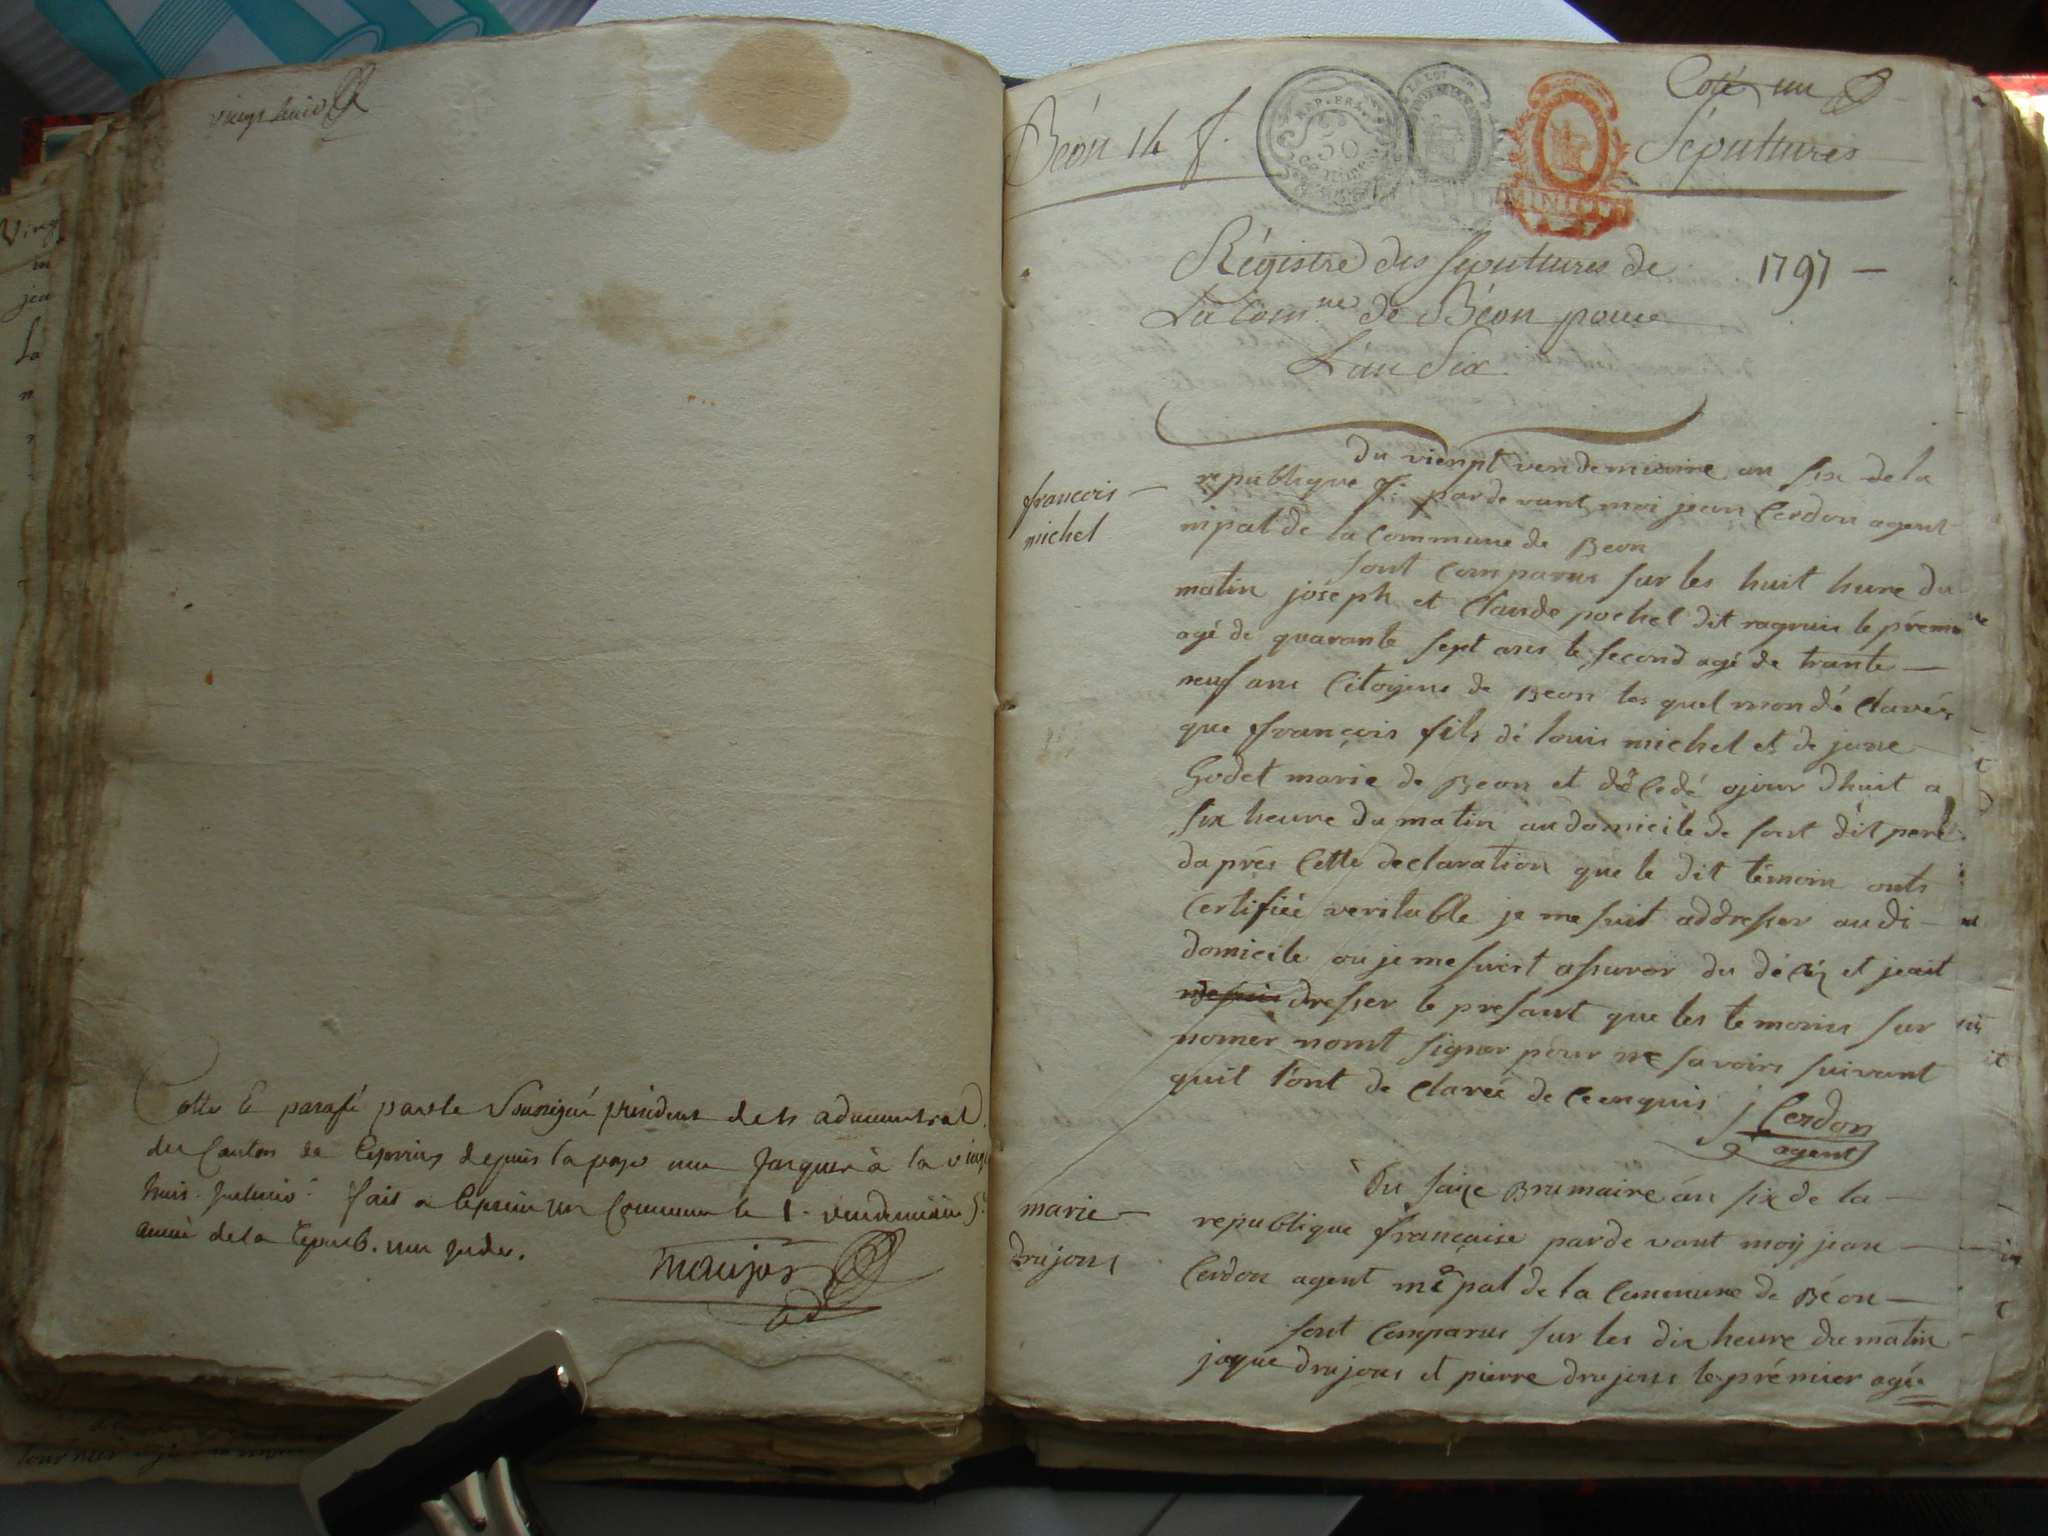 vingt huit
Cotte et parafé par le Soussigné président de l'administrat.
du Canton de Ceyzerieu depuis la page une jusques à la vingt
huit fait a Ceyzerieu Commune le 1. vendemiaire
année de la Repub. une
maujot
Coté un
Béon 14 f.
REP. FRA.
50
Sépultures
Régistre des sepultures de 1797 —
La Com.ne de Béon pour
L'an Six
françois —
michel
du vienpt vendemiaire an six de la
republique f: pardevant moi jean Cerdon agent
nipal de la Commune de Beon
sont comparus sur les huit hure du
matin joseph et Claude pochet dit ragnin le prémier
agé de quarante sept ans le second agé de trante —
neuf ans Citoyens de Beon les quel mon déclarés
que françois fils dé louis michel et de jane
Godet marie de Beon et décedé ojour dhuit a
six heure du matin au domicile de sont dit peré
daprés Cette declaration que le dit témoin onts
Certifiée veritable je me suit addresser au di —
domicile ou je me suist assurer du décéz et jeait
dresser le presant que les temoins sur
nomer nomt signer pour ne savoirs suivant
quil l'ont de Clareé de Ce enquis
j Cerdon
agent
marie —
drujons
Du saize Brumaire an six de la —
republique française parde vant moy jean —
Cerdon agent mipal de la Commune de Béon —
sont Comparus sur les dix heure du matin
jaque drujons et pierre drujons le prémier agée